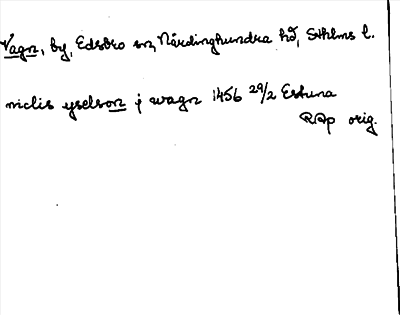 Vagn, by, Edsbro sn, Närdinghundra hd, Sthlms l.
niclis yselson j wagn 1456 29/2 Estuna
RAp orig.